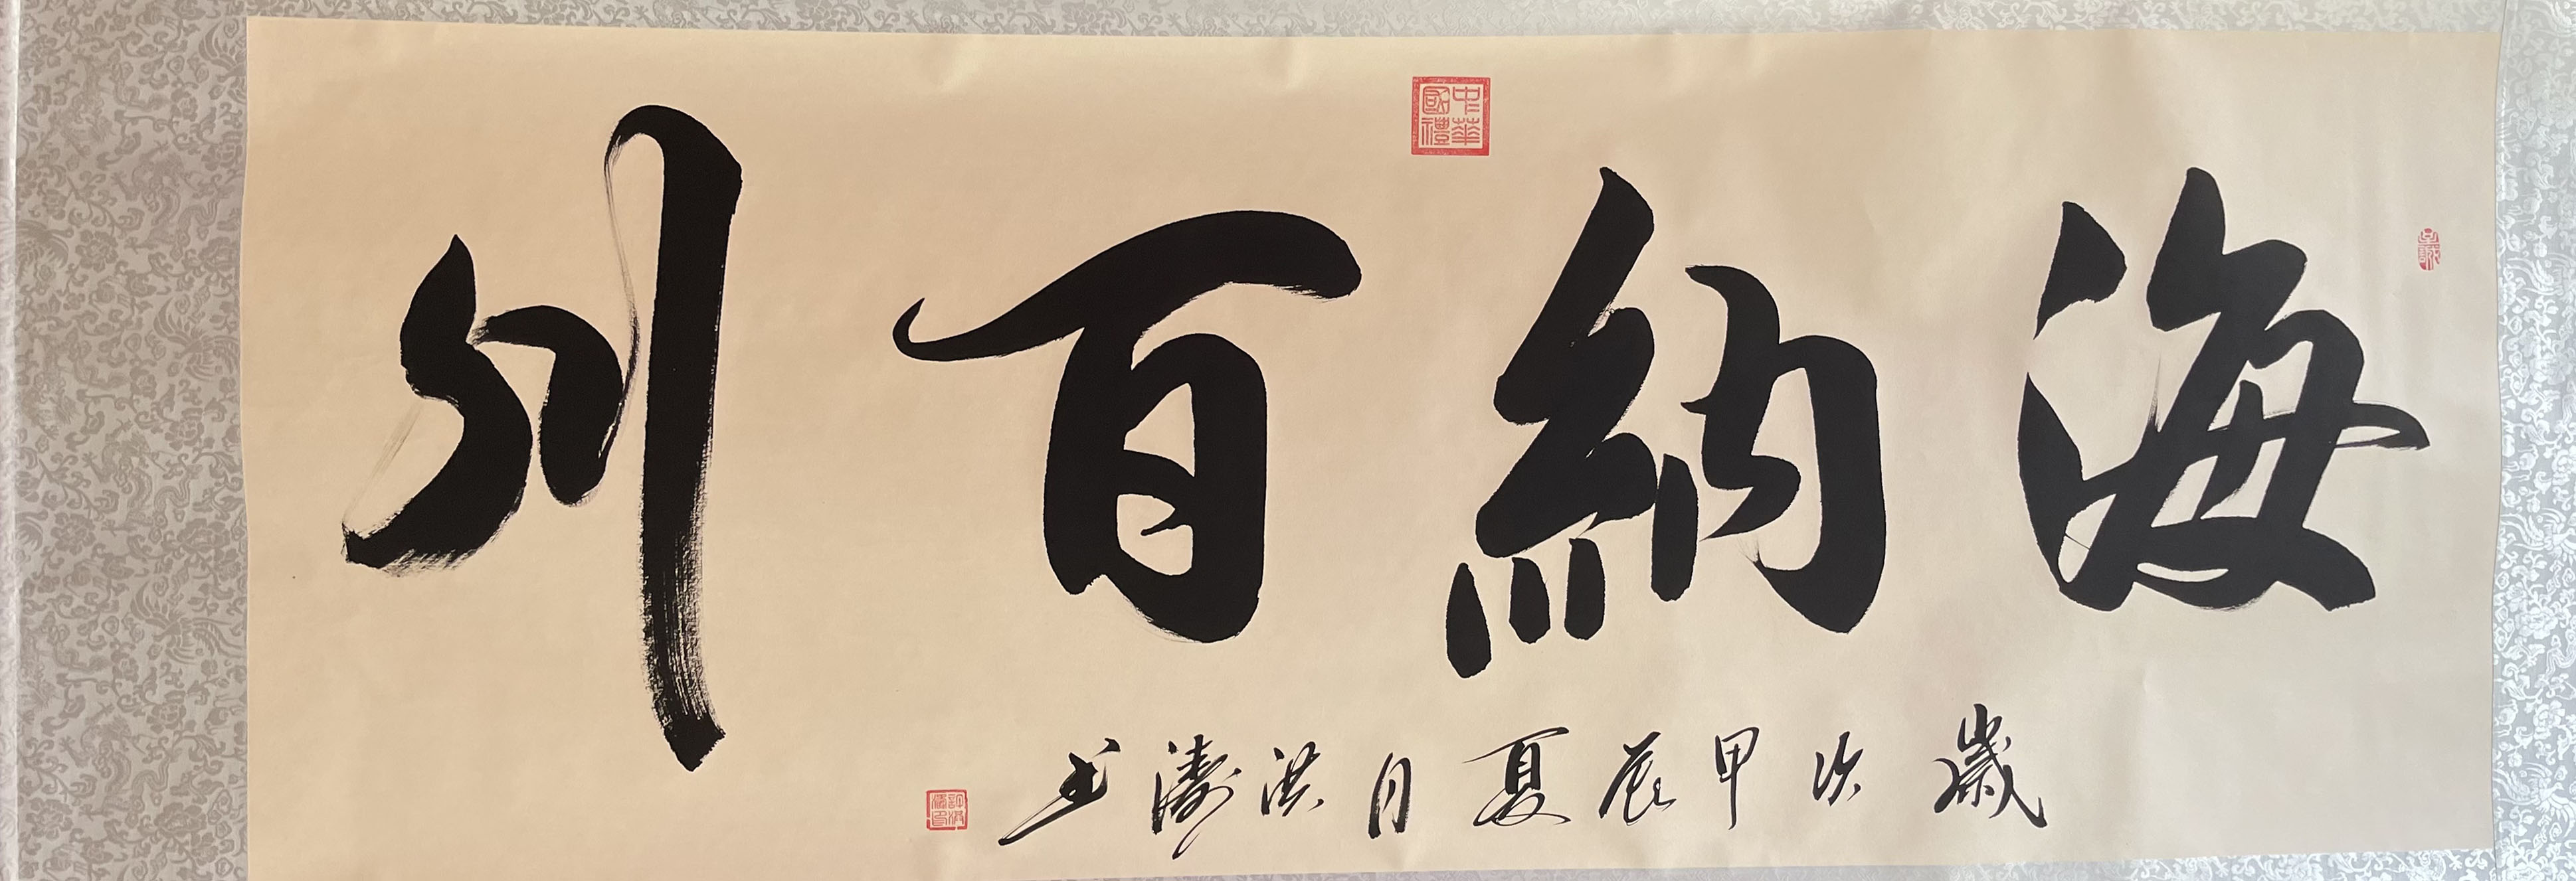 海納百川
歲次甲辰夏月洪濤書
中華國禮